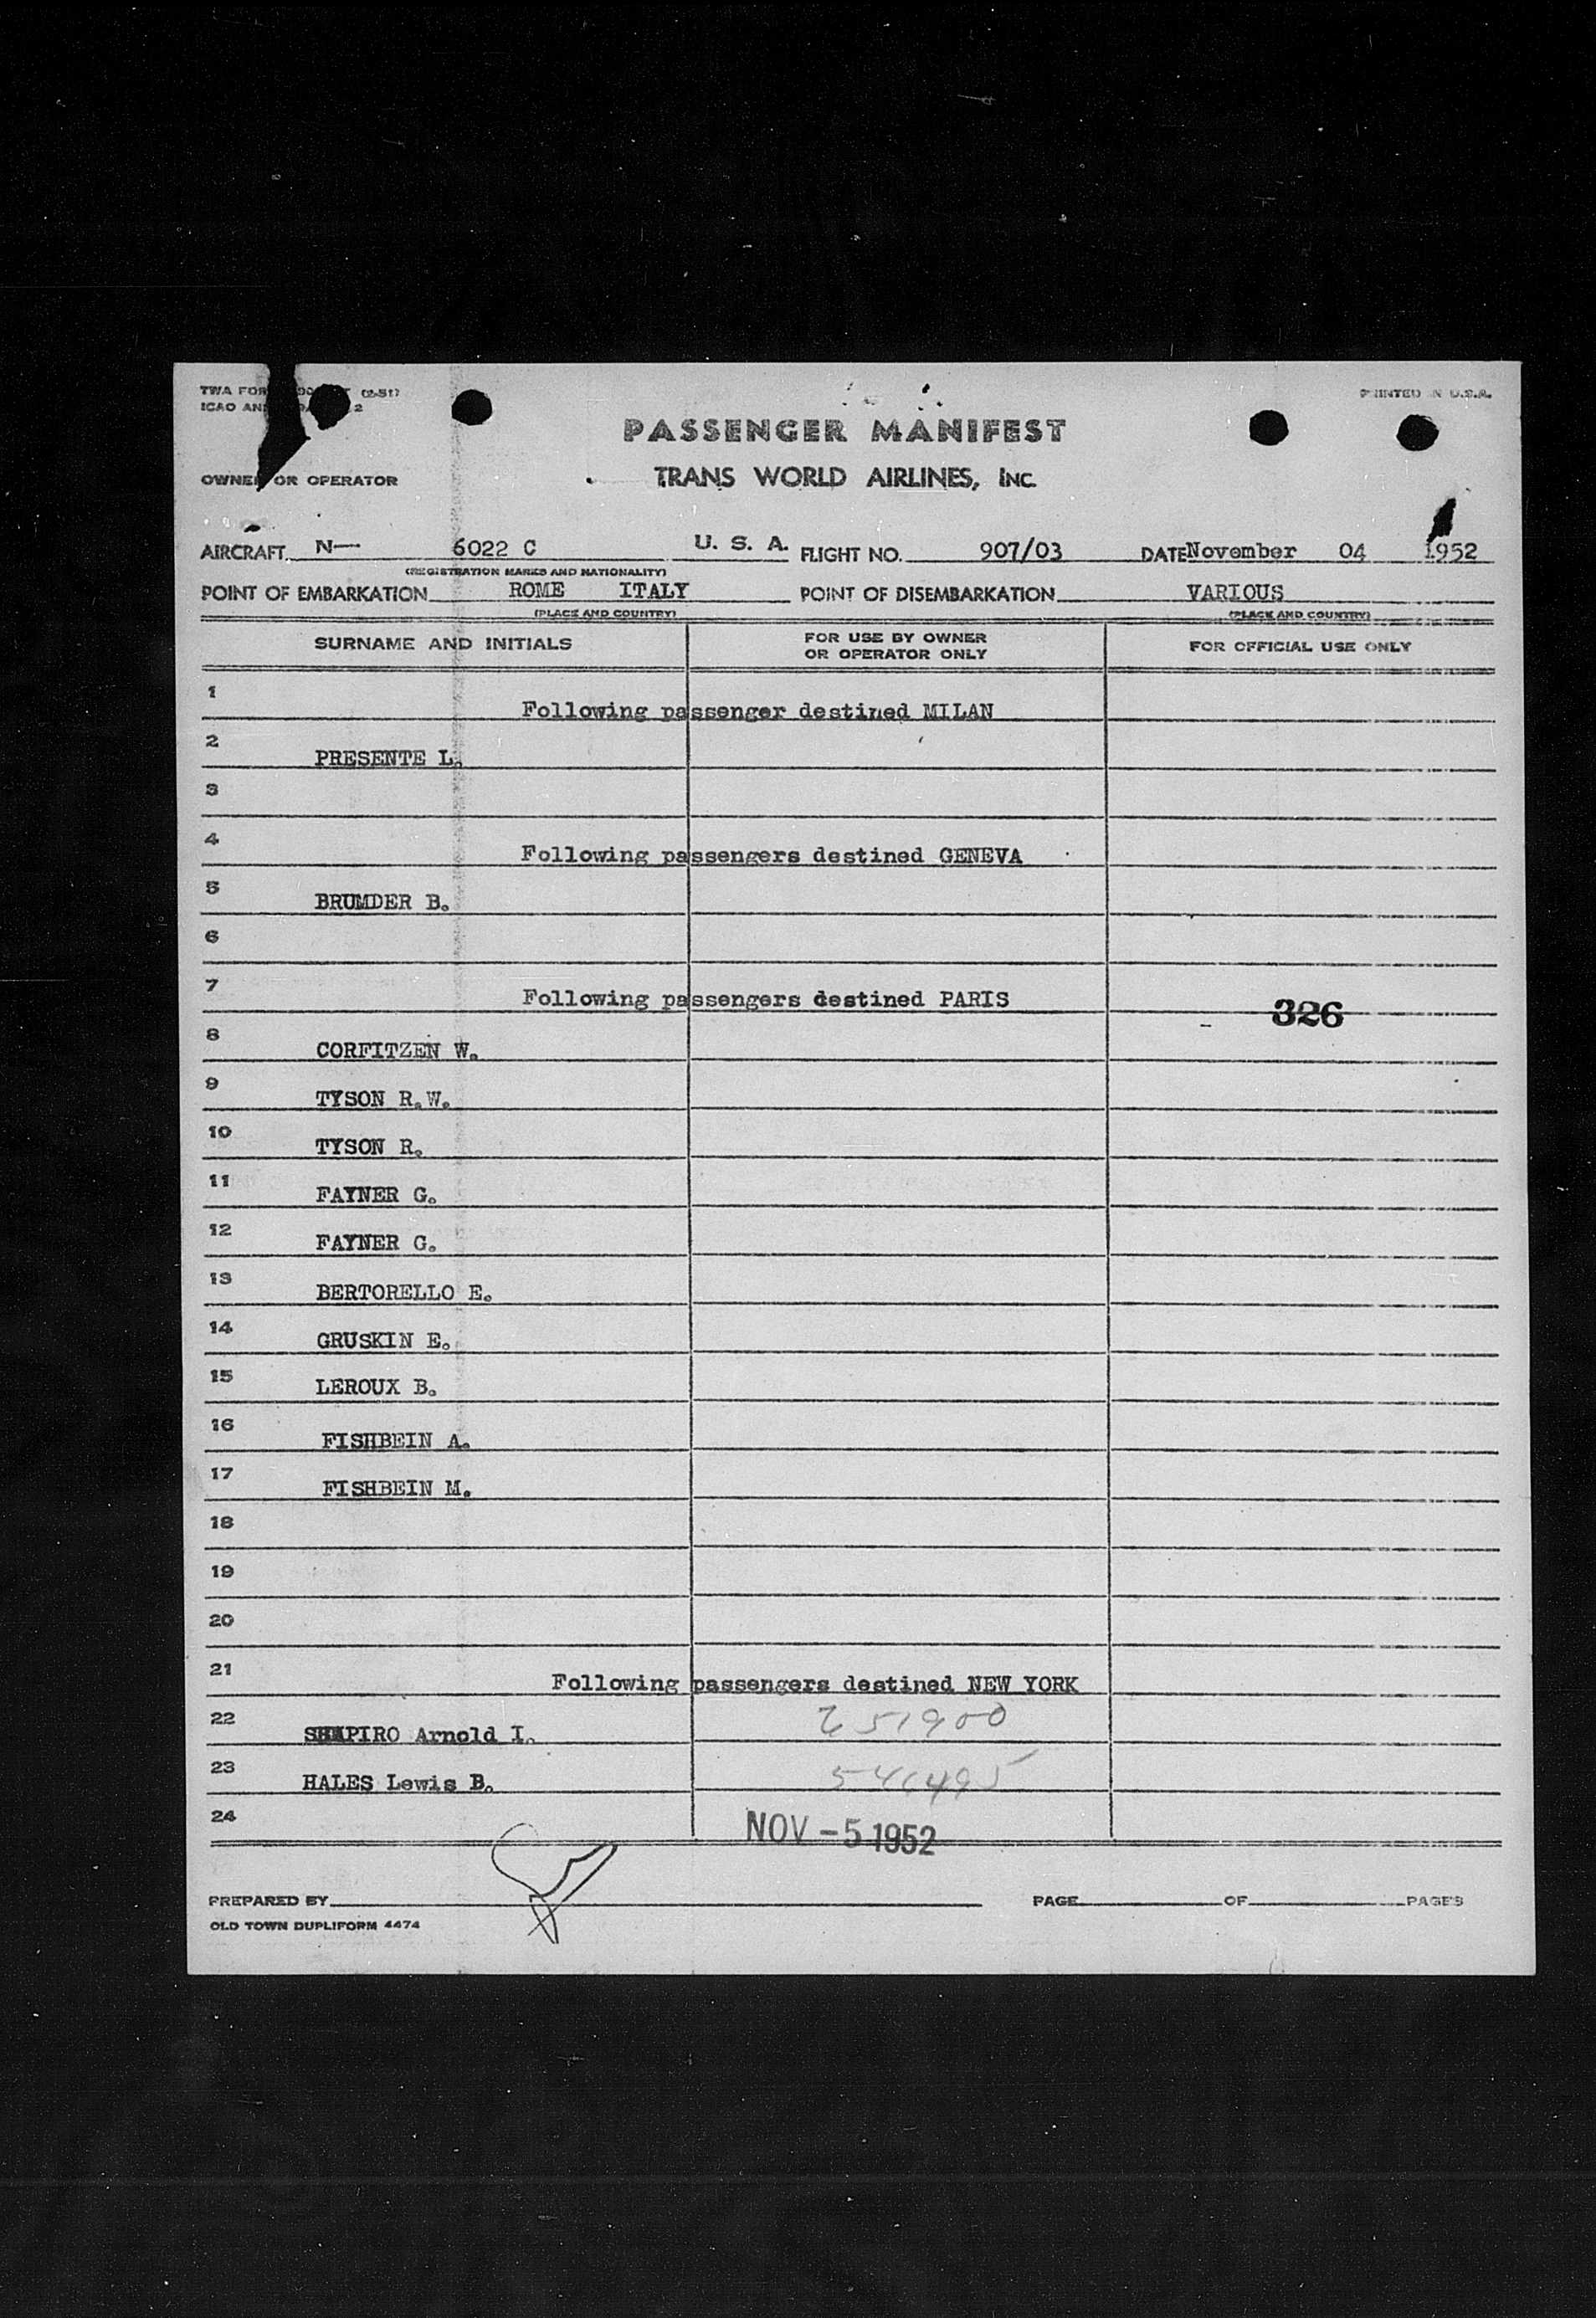 TWA FOR (2-51)
ICAO AN 2
PRINTED IN U.S.A.
PASSENGER MANIFEST
OWNER OR OPERATOR TRANS WORLD AIRLINES, INC.
AIRCRAFT N— 6022 C U. S. A. FLIGHT NO. 907/03 DATE November 04 1952
(REGISTRATION MARKS AND NATIONALITY)
POINT OF EMBARKATION ROME ITALY POINT OF DISEMBARKATION VARIOUS
(PLACE AND COUNTRY) (PLACE AND COUNTRY)
SURNAME AND INITIALS FOR USE BY OWNER OR OPERATOR ONLY FOR OFFICIAL USE ONLY
1 Following passenger destined MILAN
2 PRESENTE L.
3
4 Following passengers destined GENEVA
5 BRUMDER B.
6
7 Following passengers destined PARIS 326
8 CORFITZEN W.
9 TYSON R.W.
10 TYSON R.
11 FAYNER G.
12 FAYNER G.
13 BERTORELLO E.
14 GRUSKIN E.
15 LEROUX B.
16 FISHBEIN A.
17 FISHBEIN M.
18
19
20
21 Following passengers destined NEW YORK
22 SHAPIRO Arnold I.
23 HALES Lewis B.
24 NOV -5 1952
PREPARED BY PAGE OF PAGES
OLD TOWN DUPLIFORM 4474